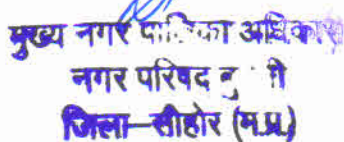 मुख्य नगर पालिका अधिकारी
नगर परिषद
जिला-सीहोर (म.प्र.)